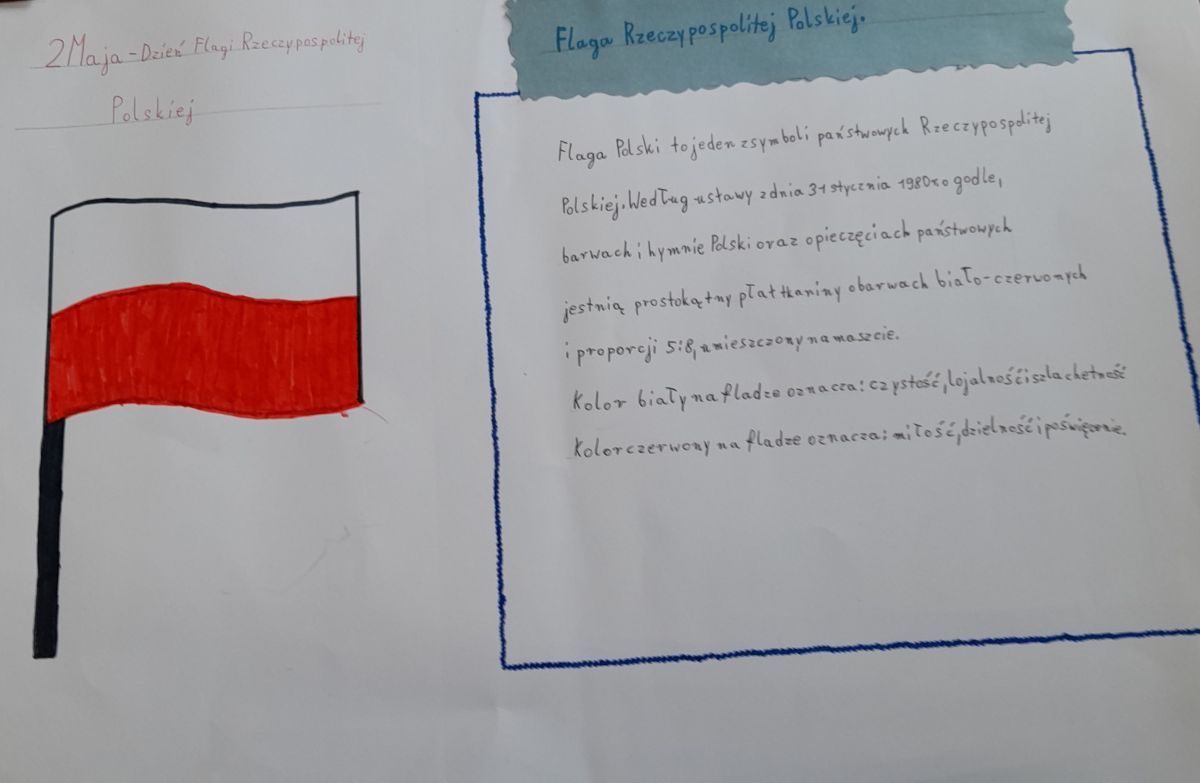 2 Maja - Dzień Flagi Rzeczypospolitej
Polskiej
Flaga Rzeczypospolitej Polskiej.
Flaga Polski to jeden z symboli państwowych Rzeczypospolitej
Polskiej. Według ustawy z dnia 31 stycznia 1980r o godle,
barwach i hymnie Polski oraz o pieczęciach państwowych
jest nią prostokątny płat tkaniny o barwach biało-czerwonych
i proporcji 5:8, umieszczony na maszcie.
Kolor biały na fladze oznacza: czystość, lojalność i szlachetność
Kolor czerwony na fladze oznacza: miłość, dzielność i poświęcenie.